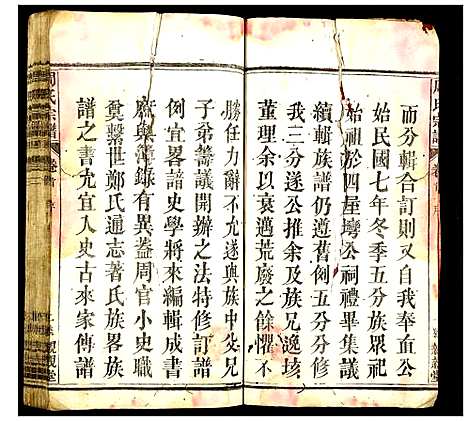 而分輯合訂則又自我奉血公
始民國七年冬季五分族眾祀
始祖於四屋壪公祠禮畢集議
續輯族譜仍遵舊例五分分修
我三分遂公推余及族兄逸垓
董理余以衰邁荒廢之餘懼不
勝任力辭不允遂與族中父兄
子弟籌議開辦之法特修訂譜
例宜畧譜史學將來編輯成書
庶與簿錄有異蓋周官小史職
奠繫世鄭氏通志著氏族畧族
譜之書允宜入史古來家傳譜
周氏宗譜 卷首 序 二 親親堂